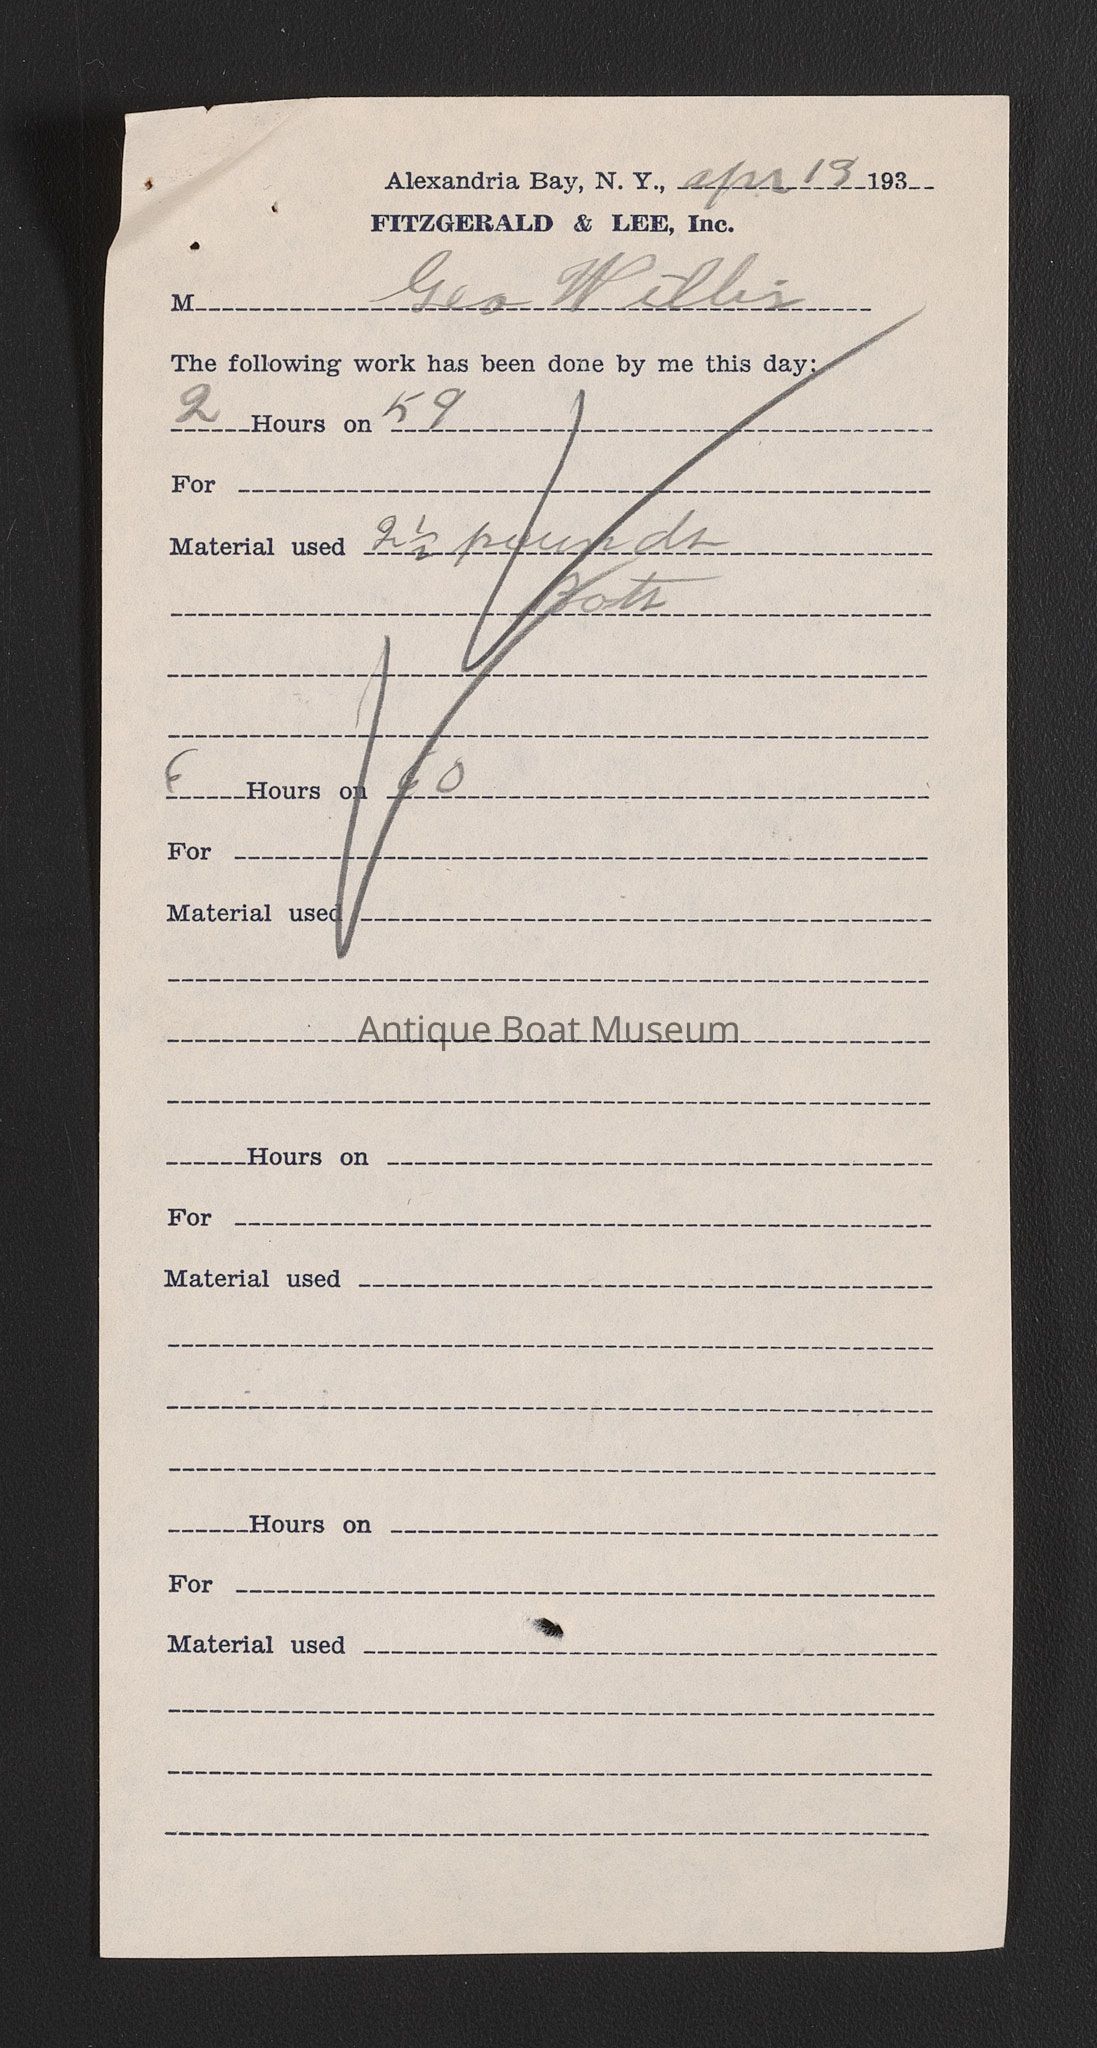 Alexandria Bay, N. Y., apr 13 193
FITZGERALD & LEE, Inc.
M Geo Willis
The following work has been done by me this day:
2 Hours on 59
For
Material used 2½ pounds
Hours on 60
For
Material used
Antique Boat Museum
Hours on
For
Material used
Hours on
For
Material used